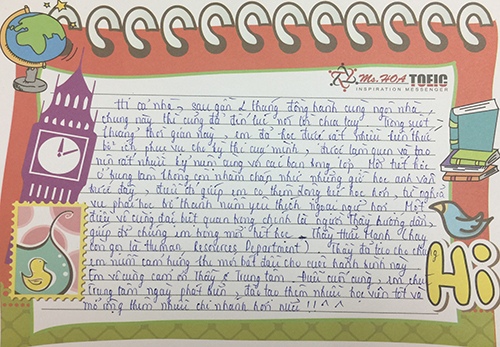 Ms. HOA TOEIC
INSPIRATION MESSENGER
Hi cả nhà, sau gần 2 tháng đồng hành cùng ngôi nhà
chung này thì cũng đã đến lúc nói lời chia tay. Trong suốt
khoảng thời gian này, em đã học được rất nhiều kiến thức
bổ ích phục vụ cho kỳ thi của mình, được làm quen và tạo
nên rất nhiều kỷ niệm cùng với các bạn trong lớp. Mỗi tiết học
ở trung tâm không em nhàm chán như những giờ học anh văn
trước đây, điều đó giúp em có thêm động lực học hơn, từ nghĩa
vụ phải học trở thành niềm yêu thích ngoại ngữ hơn. Một
điều vô cùng đặc biệt quan trọng chính là người thầy hướng dẫn,
giúp đỡ chúng em trong mỗi tiết học - Thầy Thức Hạnh (hay
còn gọi là Human Resources Department). Thầy đã tạo cho chúng
em nguồn cảm hứng thú mới bắt đầu cho cuộc hành trình này
Em vô cùng cảm ơn Thầy & Trung tâm. Cuối cùng, em chúc
trung tâm ngày phát triển, đào tạo thêm nhiều học viên tốt và
mở rộng thêm nhiều chi nhánh hơn nữa !! ^^
Hi